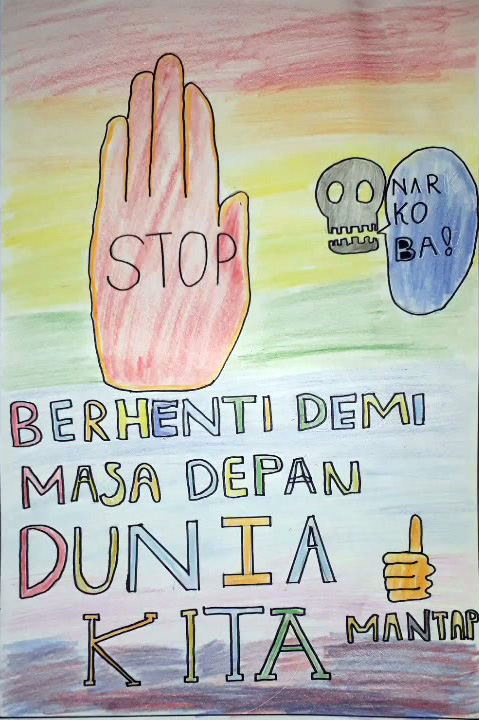 STOP
NAR
KO
BA!
BERHENTI DEMI
MASA DEPAN
DUNIA
KITA
MANTAP